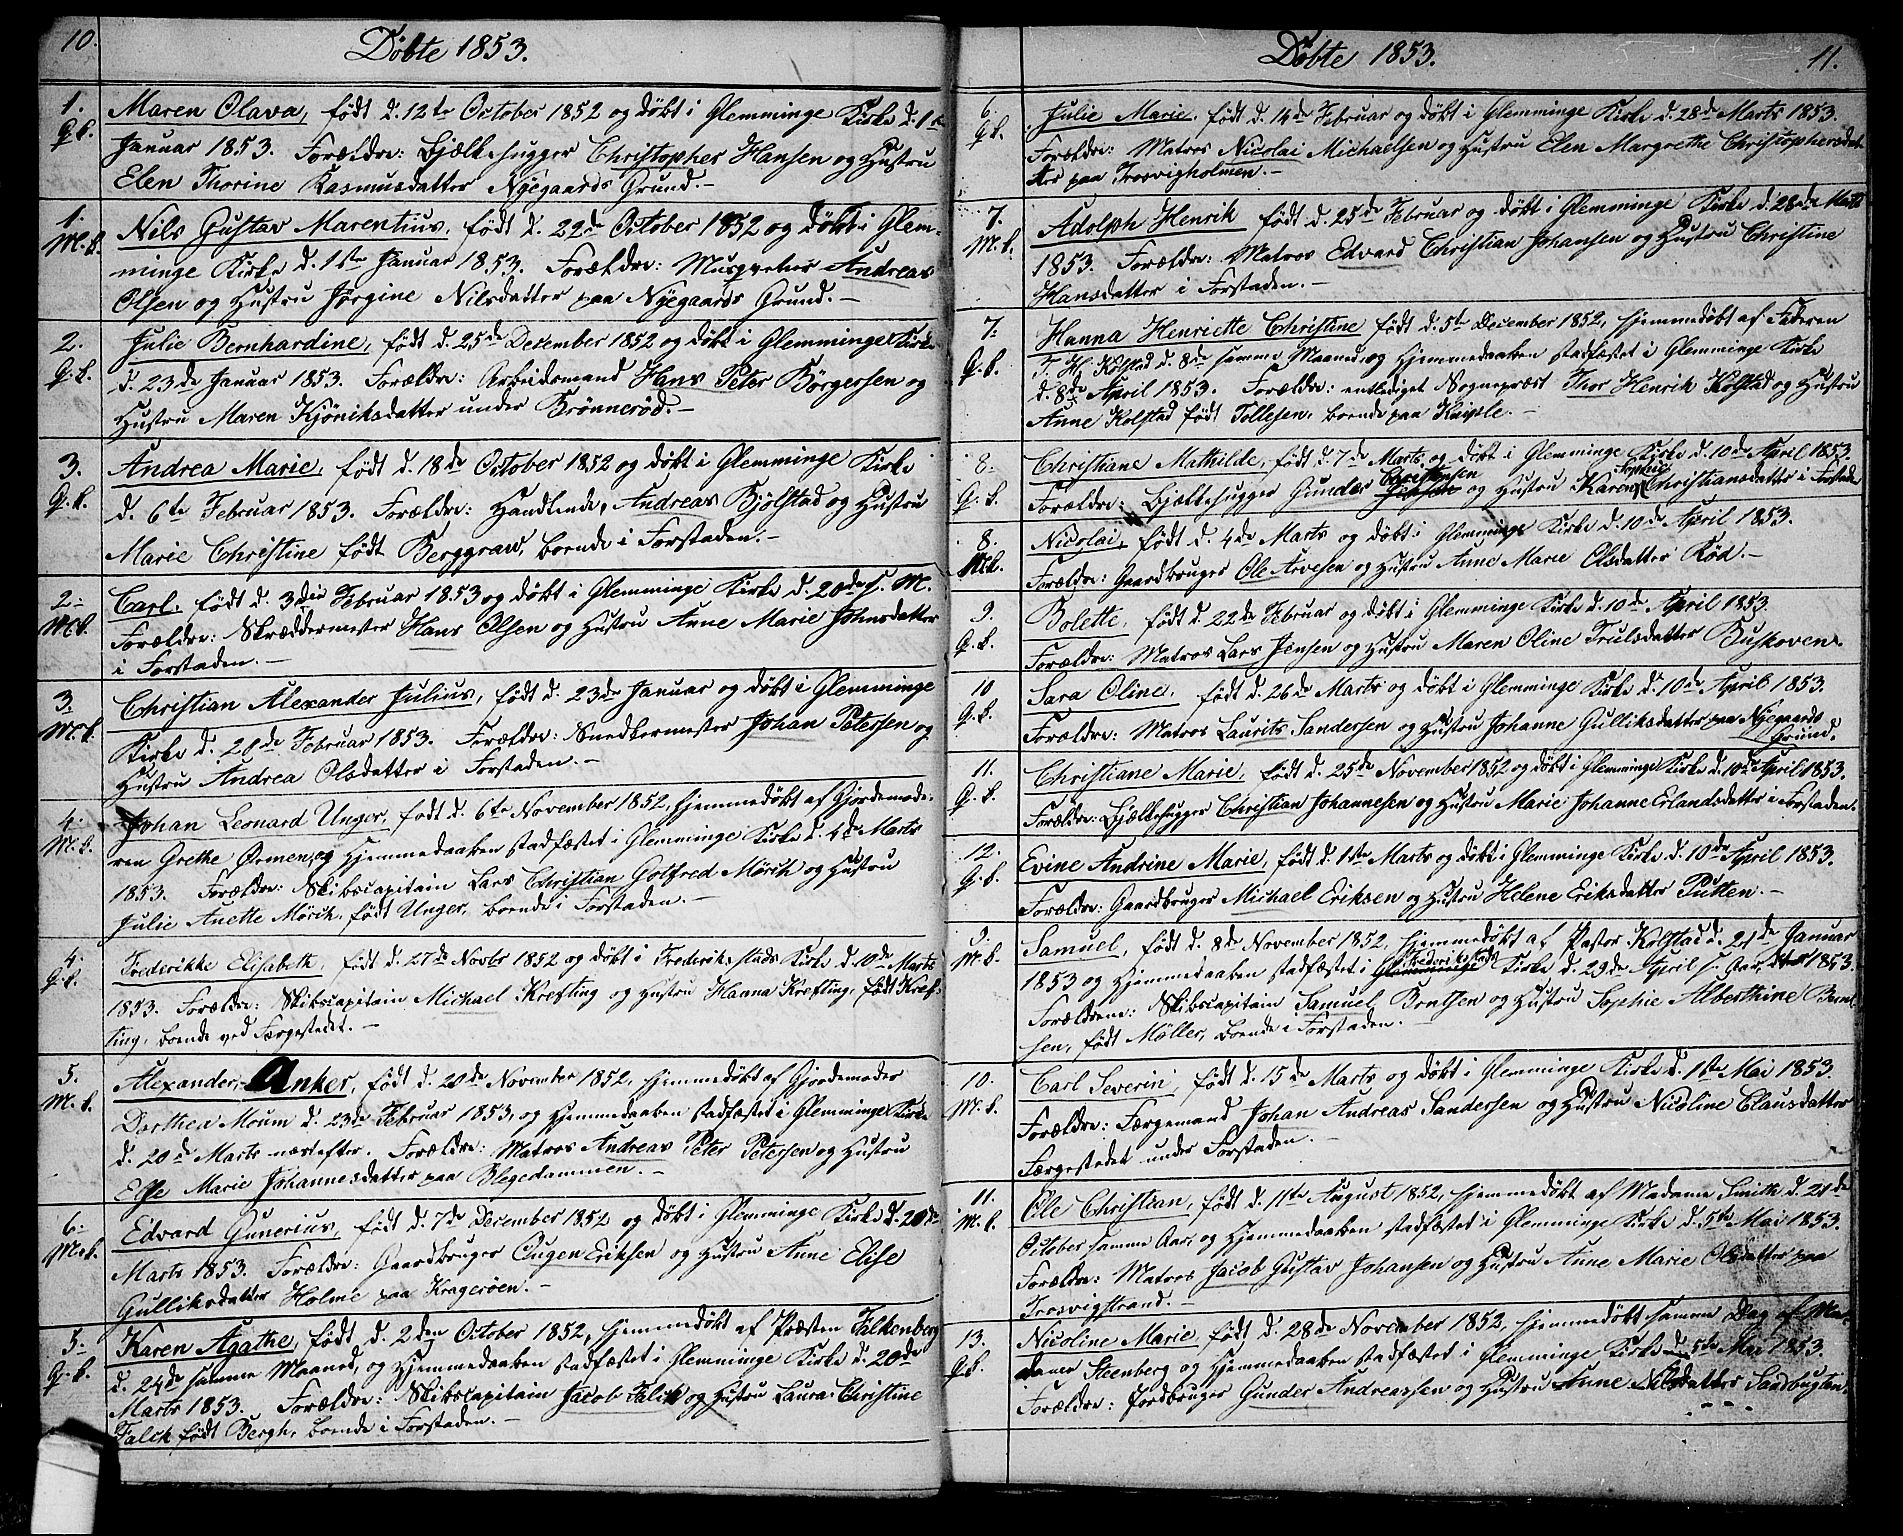 10.
Döbte 1853.
1.
G.b.
Maren Olava, født d. 12te October 1852 og døbt i Glemminge Kirke d. 1ste
Januar 1853. Forældre: Bjælkehugger Christopher Hansen og Hustru
Elen Thorine Rasmusdatter Nyegaards Grund.-
1.
M.b.
Nils Gustav Marentius, født d. 22de October 1852 og døbt i Glem-
minge Kirke d. 1ste Januar 1853. Forældre: Andreas
Olsen og Hustru Jørgine Nilsdatter paa Nyegaards Grund.-
2.
G.b.
Julie Bernhardine, født d. 25de December 1852 og døbt i Glemminge Kirke
d. 23de Januar 1853. Forældre: Arbeidsmand Hans Peter Börgersen og
Hustru Maren Kjöniksdatter under Brönneröd.-
3.
G.b.
Andrea Marie, født d. 18de October 1852 og døbt i Glemminge Kirke
d. 6te Februar 1853. Forældre: Handlende, Andreas Bjölstad og Hustru
Marie Christine født Berggraw, boende i Forstaden.-
2.
M.b.
Carl, født d. 3die Februar 1853 og døbt i Glemminge Kirke d. 20de s. M.
Forældre: Skræddermester Hans Olsen og Hustru Anne Marie Johnsdatter
i Forstaden.-
3.
M.b.
Christian Alexander Julius, født d. 23de Januar og døbt i Glemminge
Kirke d. 20de Februar 1853. Forældre: Snedkermester Johan Petersen og
Hustru Andrea Olsdatter i Forstaden.-
4.
M.b.
Johan Leonard Unger, født d. 6te November 1852, hjemmedøbt af Gjordemode-
ren Grethe Ørmen, og Hjemmedaaben stadfæstet i Glemminge Kirke d. 4de Marts
1853. Forældre: Skibscapitain Lars Christian Gotfred Mörch og Hustru
Julie Anette Mörch, født Unger, boende i Forstaden.-
4.
G.b.
Frederikke Elisabeth, født d. 27de Novbr 1852 og døbt i Frederikstads Kirke d. 10de Marts
1853. Forældre: Skibscapitain Michael Krefting og Hustru Hanna Krefting, født Kref-
ting, boende ved Færgestedet.-
5.
M.b.
Alexander, Anker, født d. 20de November 1852, hjemmedøbt af Gjordemoder
Dorthea Moum d. 23de Februar 1853, og Hjemmedaaben stadfæstet i Glemminge Kirke
d. 20de Marts næstefter. Forældre: Matros Andreas Peter Petersen og Hustru
Else Marie Johannesdatter paa Blegedammen.-
6.
M.b.
Edvard Gunerius, født d. 7de December 1852 og døbt i Glemminge Kirke d. 20de
Marts 1853. Forældre: Gaardbruger Eugen Eriksen og Hustru Anne Elise
Gulliksdatter Holme paa Kragerøen.-
5.
G.b.
Karen Agathe, født d. 2den October 1852, hjemmedøbt af Præsten Falkenberg
d. 24de samme Maaned, og Hjemmedaaben stadfæstet i Glemminge Kirke d. 20de
Marts 1853. Forældre: Skibscapitain Jacob Falck og Hustru Laura Christine
Falck født Bergh, boende i Forstaden.-
Döbte 1853.
11.
6.
G.b.
Julie Marie, født d. 14de Februar og døbt i Glemminge Kirke d. 28de Marts 1853.
Forældre: Matros Nicolai Michaelsen og Hustru Elen Margrethe Christophersdat-
ter paa Trosvigholmen.-
7.
M.b.
Adolph Henrik født d. 25de Februar og døbt i Glemminge Kirke d. 28de Marts
1853. Forældre: Matros Edvard Christian Johansen og Hustru Christine
Hansdatter i Forstaden.-
7.
G.b.
Hanna Henriette Christine født d. 5te December 1852, hjemmedøbt af Faderen
T. H. Kolstad d. 8de samme Maaned, og Hjemmedaaben stadfæstet i Glemminge Kirke
d. 8de April 1853. Forældre: entlediget Sognepræst Thor Henrik Kolstad og Hustru
Anne Kolstad født Tollefsen, boende paa
8.
G.b.
Christiane Mathilde, født d. 7de Marts, og døbt i Glemminge Kirke d. 10de April 1853.
Forældre: Bjælkehugger Gunder Christensen og Hustru Karen Sophie Christiansdatter i Forstaden
8.
M.b.
Nicolai, født d. 4de Marts og døbt i Glemminge Kirke d. 10de April 1853.
Forældre: Gaardbruger Ole Arvesen og Hustru Anne Marie Olsdatter Röd.-
9.
G.b.
Bolette, født d. 22de Februar og døbt i Glemminge Kirke d. 10de April 1853.
Forældre: Matros Lars Jensen og Hustru Maren Oline Trulsdatter Buskoven.
10
G.b.
Sara Oline, født d. 26de Marts og døbt i Glemminge Kirke d. 10de April 1853.
Forældre: Matros Laurits Sandersen og Hustru Johanne Gulliksdatter paa Nyegaards
Grund.
11.
G.b.
Christiane Marie, født d. 25de November 1852 og døbt i Glemminge Kirke d. 10de April 1853.
Forældre: Bjælkehugger Christian Johannesen og Hustru Marie Johanne Erlandsdatter i Forstaden.
12.
G.b.
Evine Andrine Marie, født d. 1ste Marts og døbt i Glemminge Kirke d. 10de April 1853.
Forældre: Gaardbruger Michael Eriksen og Hustru Helene Eriksdatter Putten.-
9.
M.b.
Samuel, født d. 8de November 1852, hjemmedøbt af Pastor Kolstad d. 21de Januar
1853 og Hjemmedaaben stadfæstet i Glemminge Frederikstads Kirke d. 29de April s. Aar, 1853.
Forældrene: Skibscapitain Samuel Berntsen og Hustru Sophie Alberthine Bernt-
sen, født Möller, boende i Forstaden.-
10.
M.b.
Carl Severin, født d. 15de Marts og døbt i Glemminge Kirke d. 1ste Mai 1853.
Forældre: Færgemand Johan Andreas Sandersen og Hustru Nicoline Clausdatter
Færgestedet under Forstaden.-
11.
M.b.
Ole Christian, født d. 11te August 1852, hjemmedøbt af Madame Smith d. 21de
October samme Aar, og Hjemmedaaben stadfæstet i Glemminge Kirke d. 5te Mai 1853.
Forældre: Matros Jacob Gustav Johansen og Hustru Anne Marie Olsdatter paa
Trosvigstrand.-
13.
G.b.
Nicoline Marie, født d. 28de November 1852, hjemmedøbt samme Dag af Ma-
dame Steenberg og Hjemmedaaben stadfæstet i Glemminge Kirke d. 5te Mai 1853.
Forældre: Jordbruger Gunder Andreassen og Hustru Anne Nilsdatter Sandbugten.